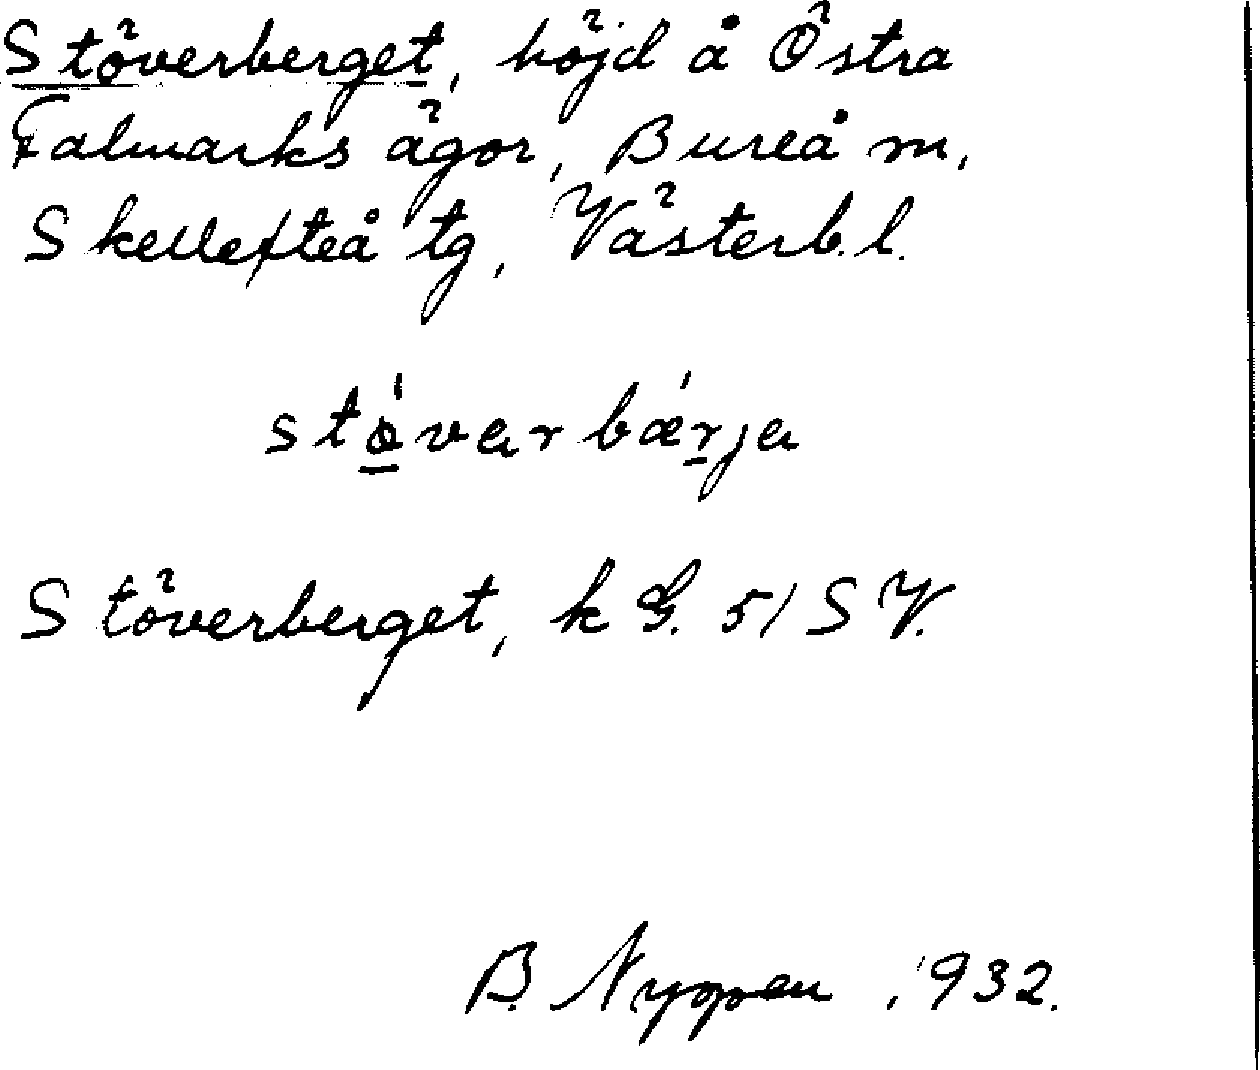 Stöverberget, höjd å Östra
Falmarks ägor, Bureå m,
Skellefteå tg, Västerb. l.
stǿvarbǽrja
Stöverberget, k G. 51 SV.
B. 1932.